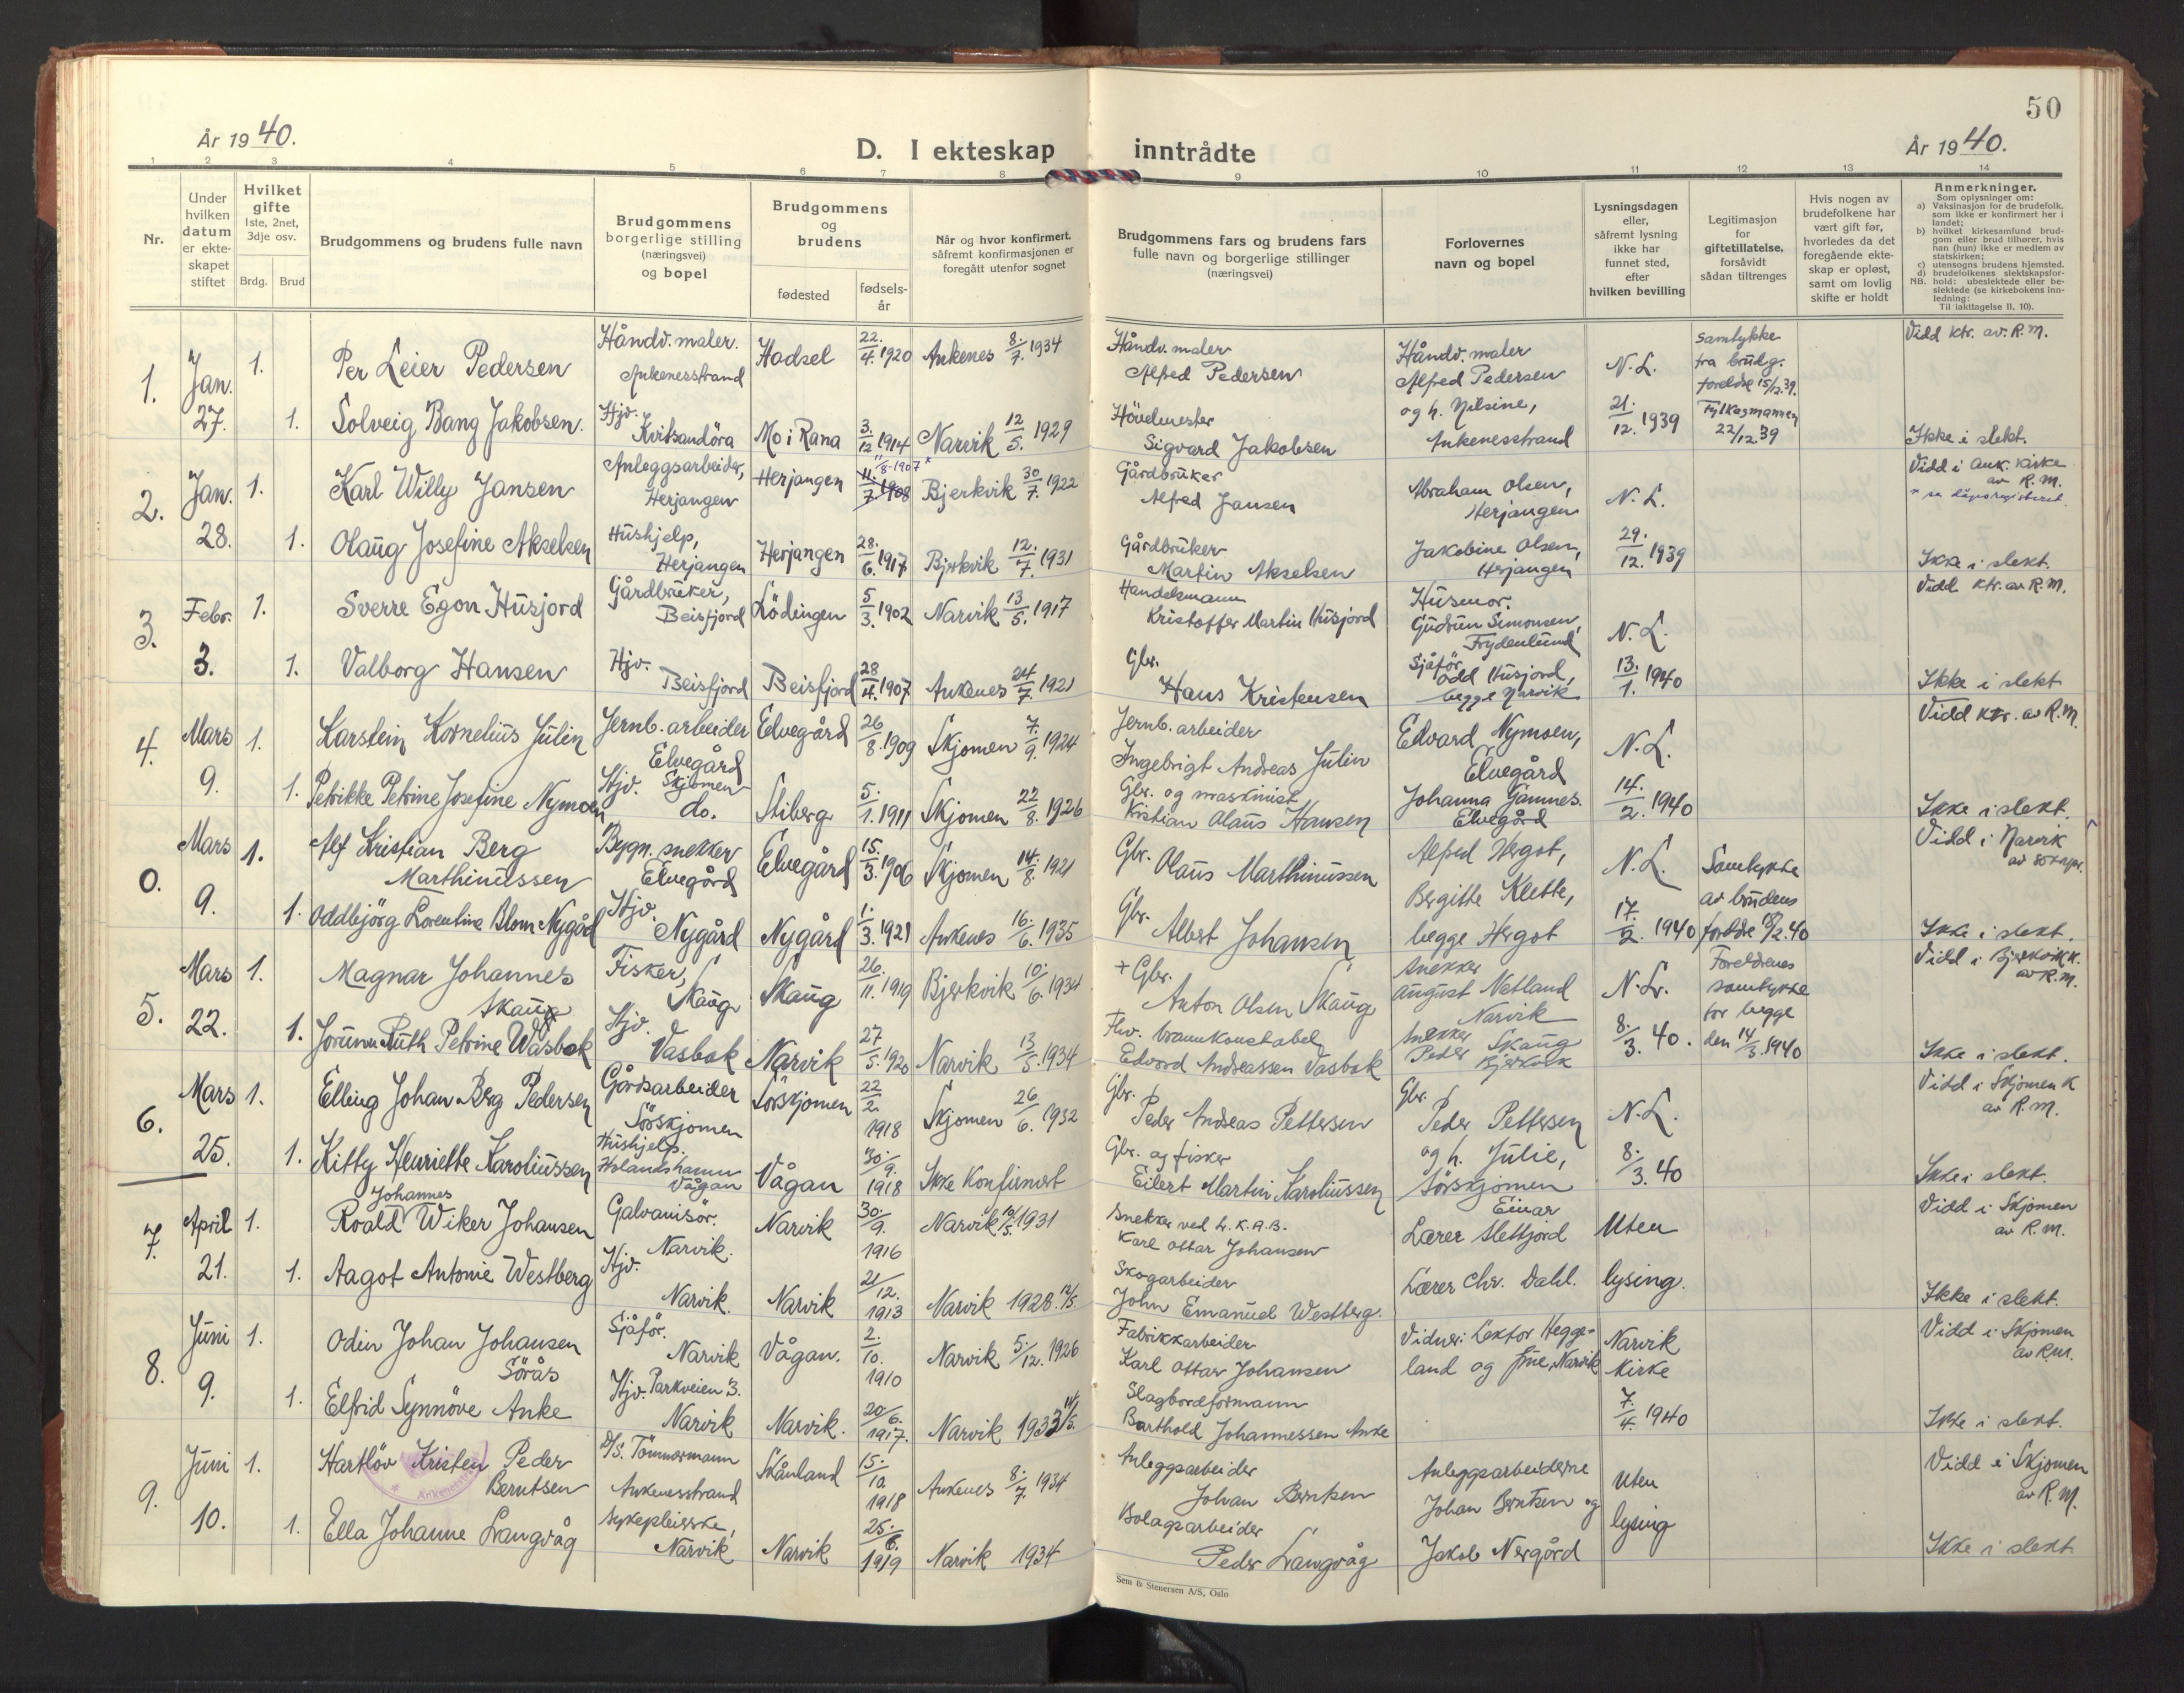 50
År 1940.
D. I ekteskap inntrådte
År 1940.
1 2 3 4 5 6 7 8 9 10 11 12 13 14
Nr.
Under hvilken datum er ekteskapet stiftet
Hvilket gifte 1ste, 2net, 3dje osv.
Brdg. Brud
Brudgommens og brudens fulle navn
Brudgommens borgerlige stilling (næringsvei) og bopel
Brudgommens og brudens
fødested
fødselsår
Når og hvor konfirmert, såfremt konfirmasjonen er foregått utenfor sognet
Brudgommens fars og brudens fars fulle navn og borgerlige stillinger (næringsvei)
Forlovernes navn og bopel
Lysningsdagen eller, såfremt lysning ikke har funnet sted, efter hvilken bevilling
Legitimasjon for giftetillatelse, forsåvidt sådan tiltrenges
Hvis nogen av brudefolkene har vært gift før, hvorledes da det foregående ekteskap er opløst, samt om lovlig skifte er holdt
Anmerkninger.
Som oplysninger om:
a) Vaksinasjon for de brudefolk, som ikke er konfirmert her i landet;
b) hvilket kirkesamfund brudgom eller brud tilhører, hvis han (hun) ikke er medlem av statskirken;
c) utensogns brudens hjemsted.
d) brudefolkenes slektskapsforhold: ubeslektede eller beslektede (se kirkebokens Innledning:
NB.
Til iakttagelse II, 10).
1. Jan. 27. 1. Per Leier Pedersen Håndv. maler. Ankenesstrand Hadsel 22/4. 1920 Ankenes 8./7. 1934 Håndv. maler Alfred Pedersen Håndv. maler Alfred Pedersen og h. Nilsine, Ankenesstrand N. L. 21./12. 1939 samtykke fra brudg. foreldre 15/12.39. Fylkesmannen 22/12 39 Vidd ktr. av. R. M.
1. Solveig Bang Jakobsen. Hjv. Kvitsandöra Mo i Rana 3./12. 1914 Narvik 12/5. 1929 Hövdmester Sigvard Jakobsen Ikke i slekt.
2. Jan. 28. 1. Karl Willy Jansen Anleggsarbeider, Herjangen Herjangen 11./7. 1908 11/8-1907 * Bjerkvik 30/7. 1922 Gårdbrüker Alfred Jansen Abraham Olsen, Herjangen N. L. 29./12. 1939 Vidd i Ank. kirke av R. M.
1. Olaüg Josefine Akselsen Hüshjelp, Herjangen Herjangen 28./6. 1917 Bjerkvik 12./7. 1931 Gårdbrüker Martin Akselsen Jakobine Olsen, Herjangen Ikke i slekt.
3. Febr. 3. 1. Sverre Egon Hüsjord Gårdbrüker, Beisfjord Lödingen 5/3. 1902 Narvik 13/5. 1917 Handelsmann Kristoffer Martin Hüsjord Hüsmor. Güdrün Simonsen, Frydenlünd N. L. 13./1. 1940 Vidd ktr. av R. M.
1. Valborg Hansen Hjv. Beisfjord Beisfjord 28/4. 1907 Ankenes 24/7. 1921 Gbr. Hans Kristensen Sjåför Odd Hüsjord, begge Narvik Ikke i slekt
4. Mars 9. 1. Karstein Kornelius Jülin Jernb. arbeider Elvegård Skjomen Elvegård 26/8. 1909 Skjomen 7./9. 1924 Jernb. arbeider Ingebrigt Andreas Jülin Edvard Nymoen, Elvegård N. L. 14./2. 1940 Vidd ktr. av R. M.
1. Petrikke Petrine Josefine Nymoen Hjv. do. Stiberg 5./1. 1911 Skjomen 22/8. 1926 Gbr. og maskinist Kristian Olaüs Hansen Johanna Gamnes. Elvegård Ikke i slekt.
0. Mars 9. 1. Alf Kristian Berg Marthinüssen Bygn. snekker Elvegård Elvegård 15./3. 1906 Skjomen 14./8. 1921 Gbr. Olaüs Marthinüssen Alfred Hergot, Bergitte Klette, begge Hergot N. L. 17./2. 1940 Samtykke av brüdens foreldre 18/2.40 Vidd i Narvik av sokнpr.
1. Oddbjörg Lorentine Blom Nygård Hjv. Nygård Nygård 1./3. 1921 Ankenes 16./6. 1935 Gbr. Albert Johansen Ikke i slekt.
5. Mars 22. 1. Magnar Johannes Skaug Fisker, Skaug Skaüg 26./11. 1919 Bjerkvik 10./6. 1934 + Gbr. Anton Olsen Skaüg snekker August Natland Narvik N. L. 8./3. 40. Foreldrenes samtykke for begge den 14/3.1940 Vidd i Bjerkvik k. av R. M.
1. Jorünn Rüth Petrine Wasbok Hjv. Vasbok Narvik 27/5. 1920 Narvik 13/5. 1934 Fhv. brannkonstabel Edvard Andreassen Vasbok snekker Peder Skaüg Bjerkvik Ikke i slekt.
6. Mars 25. 1. Elling Johan Berg Pedersen Gårdsarbeider Sörskjomen Sörskjomen 22/2. 1918 Skjomen 26/6. 1932 Gbr. Peder Andreas Pettersen Gbr. Peder Pettersen og h. Jülie, Sörskjomen N. L. 8./3. 40 Vidd i Skjomen K av R. M.
1. Kitty Henriette Karoliüssen Hüshjelp. Holandshamn Vågan Vågan 30./9. 1918 Ikke konfirmert Gbr. og fisker Eilert Martin Karoliüssen Ikke i slekt.
7. April 21. 1. Roald Johannes Wiker Johansen Galvanisör. Narvik. Narvik 30/9. 1916 Narvik 10/5. 1931 Snekker ved L. K. A. B. Karl Ottar Johansen Lærer Einar Slettjord Uten lysing. Vidd i Skjomen av R. M.
1. Aagot Antonie Westberg Hjv. Narvik. Narvik 21/12. 1913 Narvik 1928. 13/5. Skogarbeider John Emanuel Westberg. Lærer Chr. Dahl. Ikke i slekt.
8. Jüni 9. 1. Odin Johan Johansen Sörås Sjåför. Narvik Vågan. 2./10. 1910 Narvik 5./12. 1926 Fabrikkarbeider Karl Ottar Johansen Vidner: Lektor Heggeland og frue, Narvik Narvik Kirke 7./4. 1940 Vidd i Skjomen av R.M.
1. Elfrid Synnöve Anke Hjv. Parkveien 3. Narvik Narvik. 20/6. 1917. Narvik 1933 14/5. Slagbordformann Barthold Johannessen Anke Ikke i slekt.
9. Jüni 10. 1. Hartlöv Kristen Peder Berntsen D/S. Tömmermann Ankenesstrand Skånland 15./10. 1918 Ankenes 8./7. 1934 Anleggsarbeider Johan Berntsen Anleggsarbeiderne Johan Berntsen og Jakob Nergård Uten lysing Vidd i Skjomen av R. M.
1. Ella Johanne Langvåg sykepleierske, Narvik Narvik 25./6. 1919 Narvik 1934 Bolagsarbeider Peder Langvåg Ikke i slekt
Sem & Stenersen A/S, Oslo